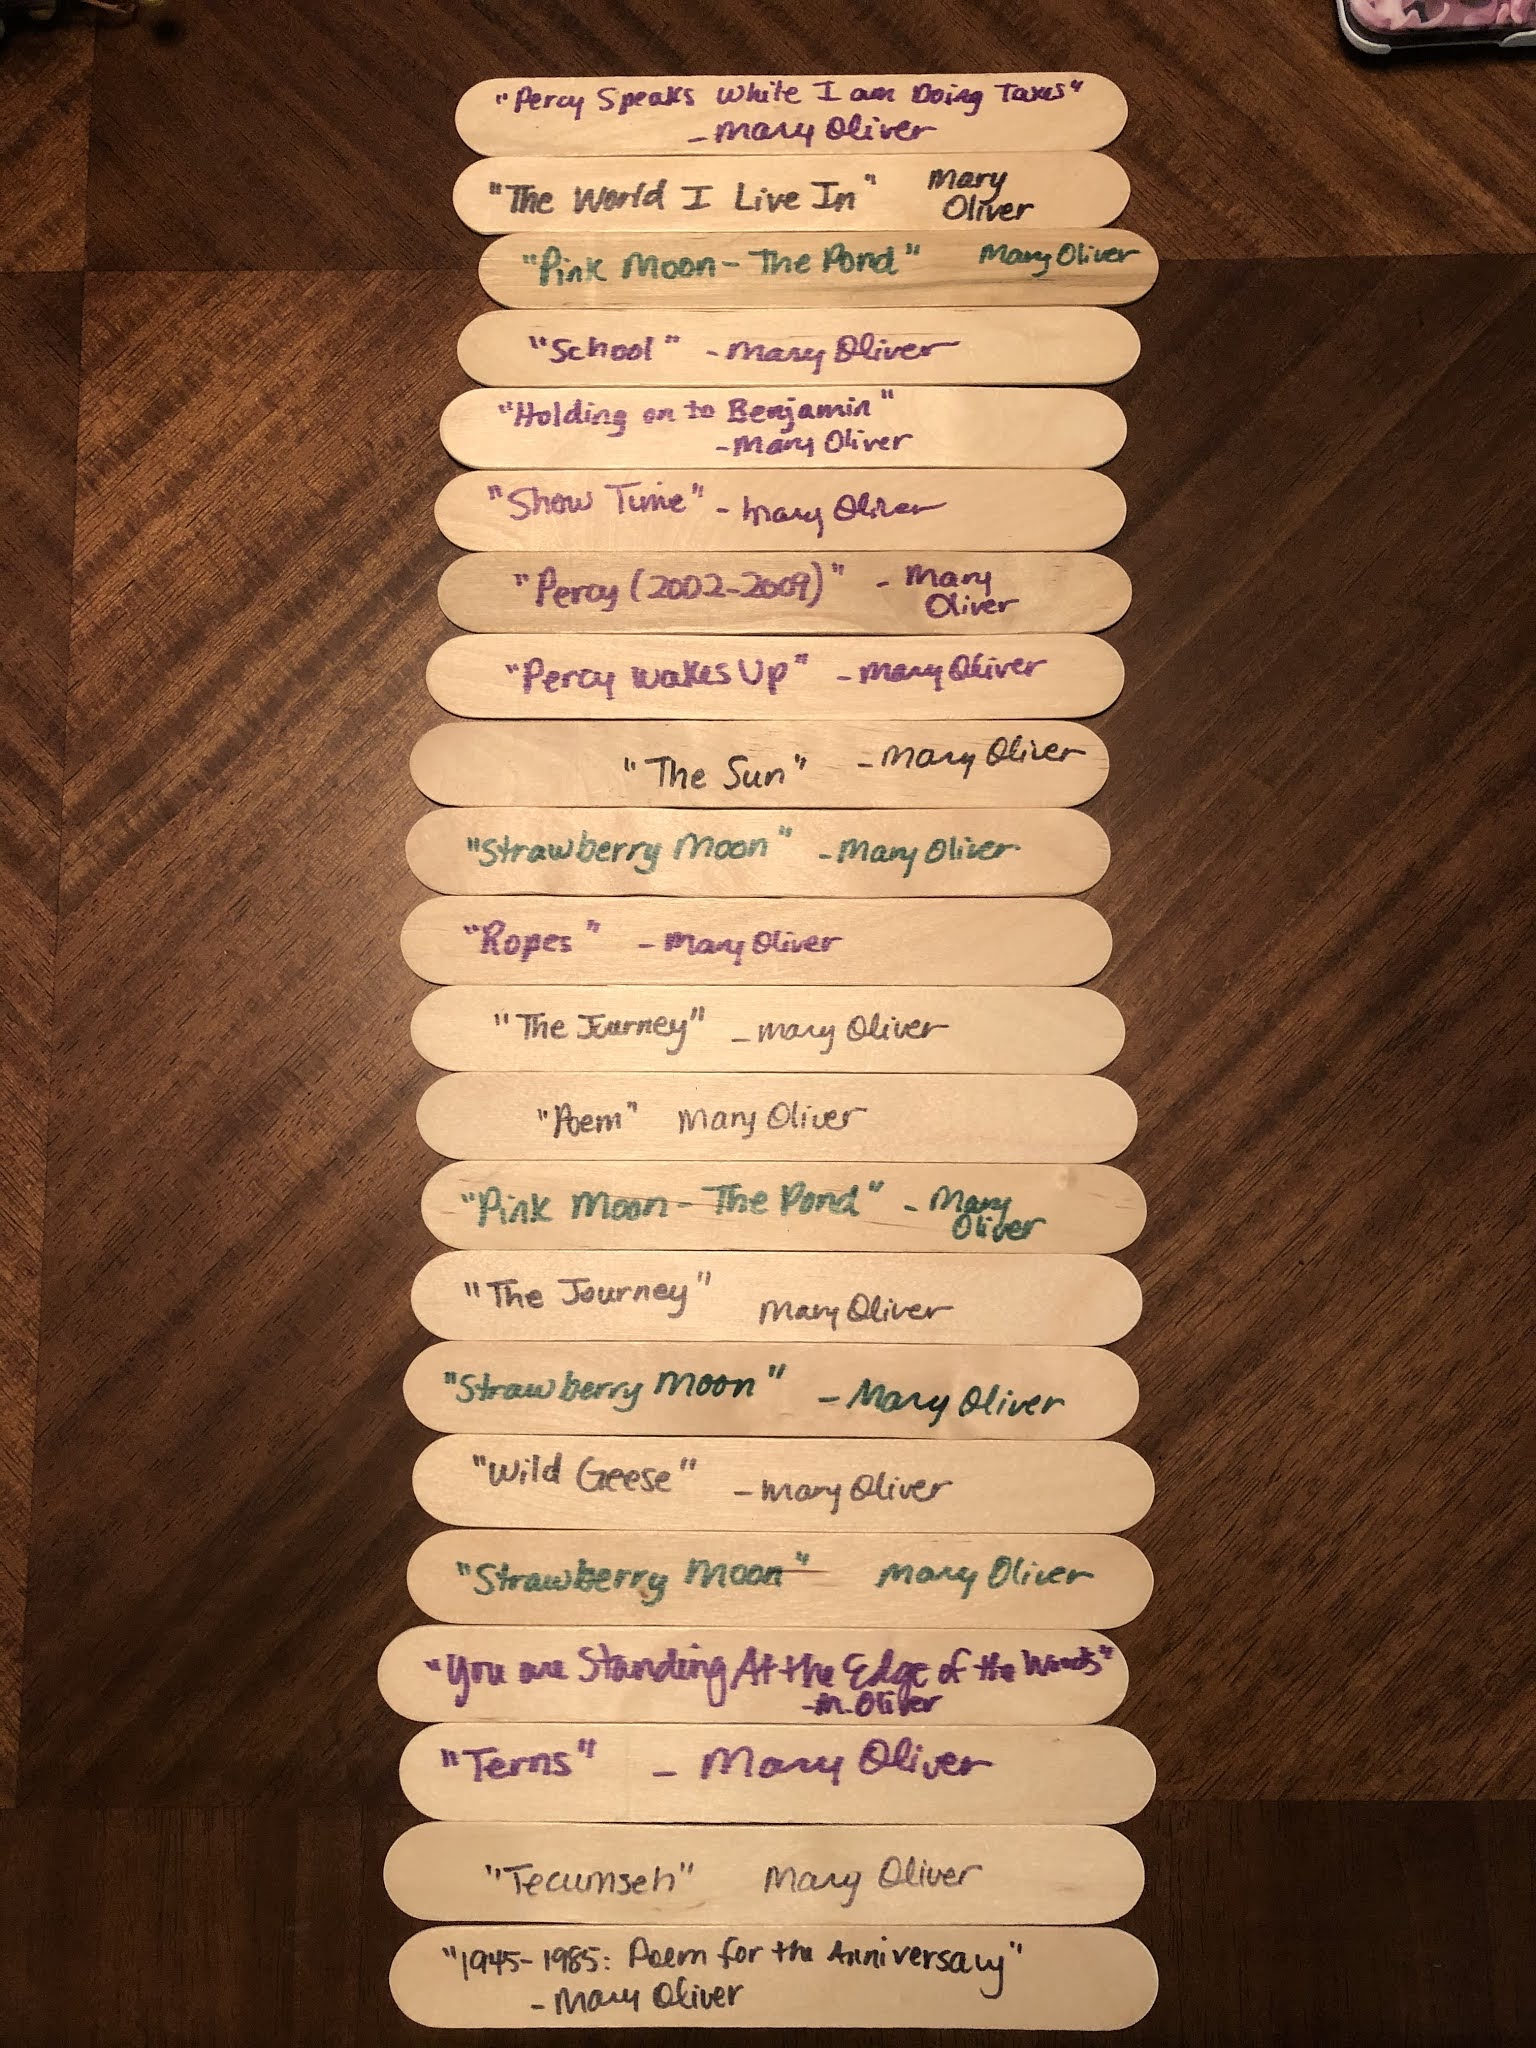 "Percy Speaks While I am Doing Taxes"
- Mary Oliver
"The World I Live In" Mary
Oliver
"Pink Moon - The Pond" Mary Oliver
"School" - Mary Oliver
"Holding on to Benjamin"
- Mary Oliver
"Show Time" - Mary Oliver
"Percy (2002-2009)" - Mary
Oliver
"Percy Wakes Up" - Mary Oliver
"The Sun" - Mary Oliver
"Strawberry Moon" - Mary Oliver
"Ropes" - Mary Oliver
"The Journey" - Mary Oliver
"Poem" Mary Oliver
"Pink Moon - The Pond" - Mary
Oliver
"The Journey" Mary Oliver
"Strawberry Moon" - Mary Oliver
"Wild Geese" - Mary Oliver
"Strawberry Moon" Mary Oliver
"You are Standing At the Edge of the Woods"
- M. Oliver
"Terns" - Mary Oliver
"Tecumseh" Mary Oliver
"1945-1985: Poem for the Anniversary"
- Mary Oliver